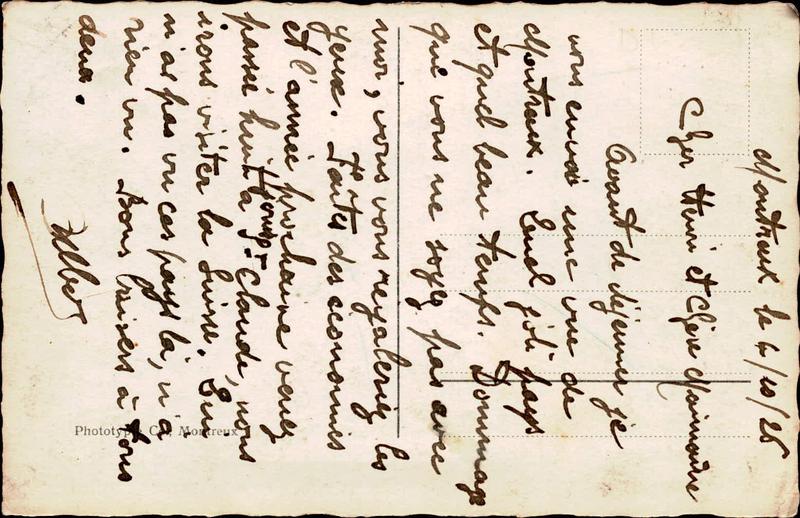 Montreux le 4/10/26
Cher Henri et Chère
Avant de déjeuner je
vous envoie une vue de
Montreux. Quel joli pays
et quel beau temps. Dommage
que vous ne soyez pas avec
moi, vous vous regaleriez les
yeux. Faites des économies
et l'année prochaine venez
passer huit jours à St Claude, nous
irons visiter la Suisse. Qui
n'as pas vu ces pays là, n'a
rien vu. Bons baisers à tous
deux.
Albert
Phototypie Co., Montreux